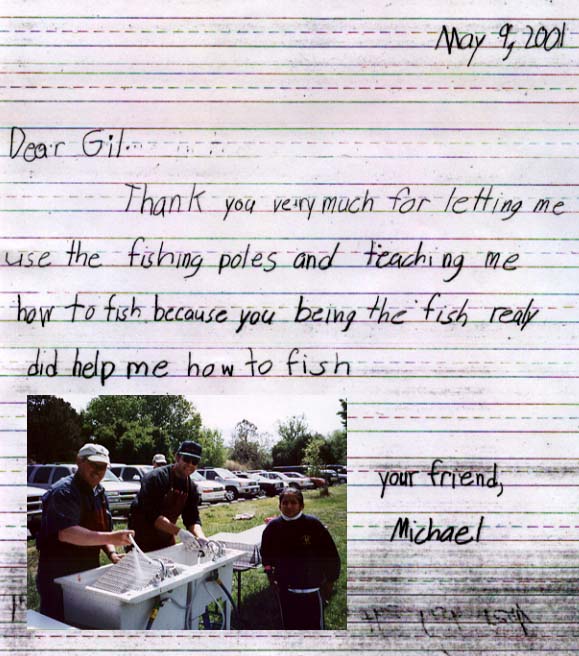 May 9, 2001
Dear Gil.
Thank you very much for letting me
use the fishing poles and teaching me
how to fish because you being the fish realy
did help me how to fish
your friend,
Michael